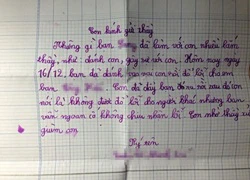 Con kính gửi thầy
Những gì bạn đã làm với con nhiều lắm
thầy, như: đánh con, gây sự với con. Hôm nay ngày
16/12, bạn đã đánh vào con rồi đổ lỗi cho em
bạn Con đã dạy bạn rồi sau đó con
nói là không được đổ lỗi cho người khác nhưng bạn
vẫn ngoan cố không chịu nhận lỗi. Con nhờ thầy xử
giùm con.
Ký tên